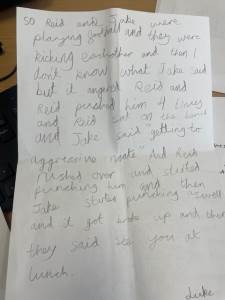 so Reid and Jake were
playing football and they were
kicking eachother and then I
don't know what Jake said
but it angered Reid and
Reid pushed him 4 times
and Reid sat on the bench
and Jake said "getting to
aggressive mate" And Reid
rushed over and started
punching him and then
Jake started punching aswell
and it got broke up and then
they said see you at
lunch.
Luke